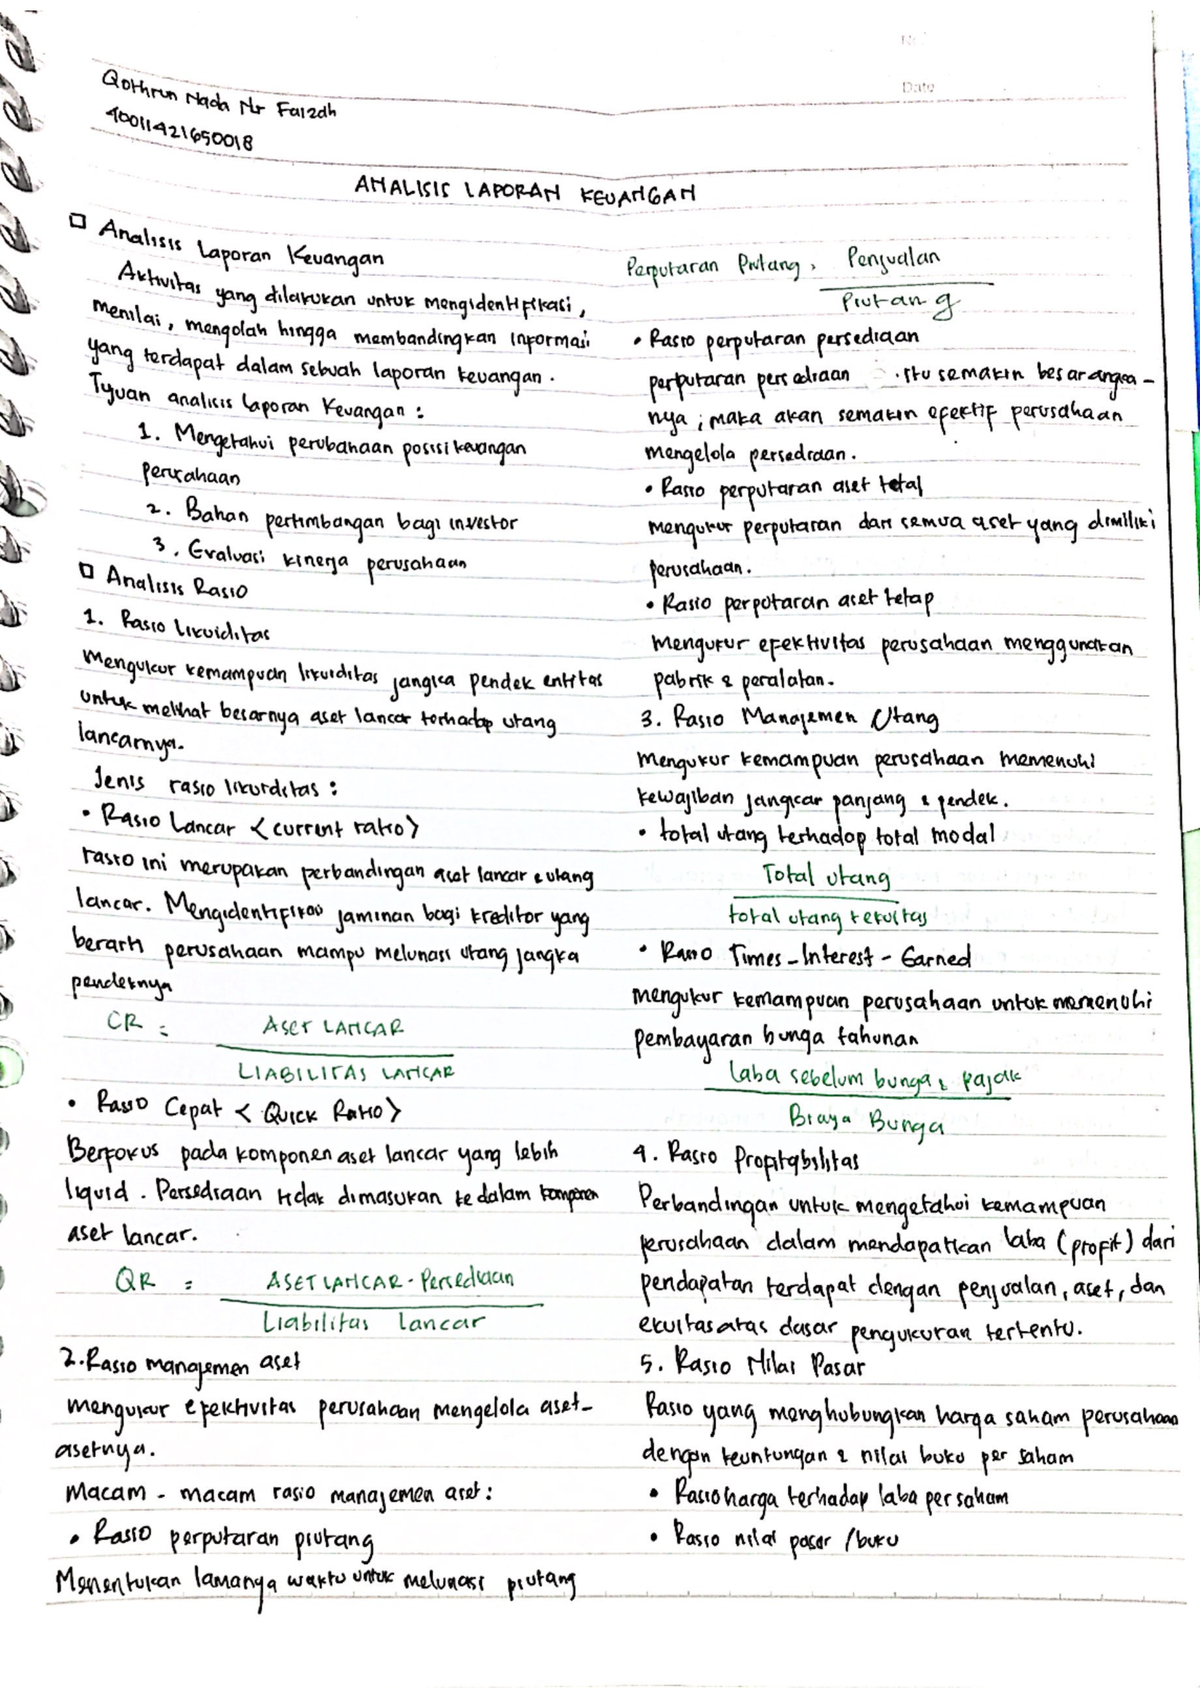 No.
Date
Qothrun Nada Nr Faizah
40011421650018
ANALISIS LAPORAN KEUANGAN
Analisis Laporan Keuangan
Aktivitas yang dilakukan untuk mengidentifikasi,
menilai, mengolah hingga membandingkan informasi
yang terdapat dalam sebuah laporan keuangan.
Tujuan analisis laporan keuangan :
1. Mengetahui perubahaan posisi keuangan
perusahaan
2. Bahan pertimbangan bagi investor
3. Evaluasi kinerja perusahaan
Analisis Rasio
1. Rasio likuiditas
Mengukur kemampuan likuiditas jangka pendek entitas
untuk melihat besarnya aset lancar terhadap utang
lancarnya.
Jenis rasio likuiditas :
• Rasio Lancar <current ratio>
rasio ini merupakan perbandingan aset lancar & utang
lancar. Mengidentifikasi jaminan bagi kreditor yang
berarti perusahaan mampu melunasi utang jangka
pendeknya
CR = ASET LANCAR
LIABILITAS LANCAR
• Rasio Cepat <Quick Ratio>
Berfokus pada komponen aset lancar yang lebih
liquid. Persediaan tidak dimasukan ke dalam komponen
aset lancar.
QR = ASET LANCAR - Persediaan
Liabilitas lancar
2. Rasio manajemen aset
mengukur efektivitas perusahaan mengelola aset-
asetnya.
Macam - macam rasio manajemen aset :
• Rasio perputaran piutang
Menentukan lamanya waktu untuk melunasi piutang
Perputaran Piutang = Penjualan
Piutang
• Rasio perputaran persediaan
perputaran persediaan itu semakin besar angka-
nya ; maka akan semakin efektif perusahaan
mengelola persediaan.
• Rasio perputaran aset total
mengukur perputaran dari semua aset yang dimiliki
perusahaan.
• Rasio perputaran aset tetap
Mengukur efektivitas perusahaan menggunakan
pabrik & peralatan.
3. Rasio Manajemen Utang
Mengukur kemampuan perusahaan memenuhi
kewajiban jangkar panjang & pendek.
• total utang terhadap total modal
Total utang
total utang + ekuitas
• Rasio Times-Interest-Earned
mengukur kemampuan perusahaan untuk memenuhi
pembayaran bunga tahunan
laba sebelum bunga & pajak
Biaya Bunga
4. Rasio Profitabilitas
Perbandingan untuk mengetahui kemampuan
perusahaan dalam mendapatkan laba (profit) dari
pendapatan terdapat dengan penjualan, aset, dan
ekuitas atas dasar pengukuran tertentu.
5. Rasio Nilai Pasar
Rasio yang menghubungkan harga saham perusahaan
dengan keuntungan & nilai buku per saham
• Rasio harga terhadap laba per saham
• Rasio nilai pasar /buku